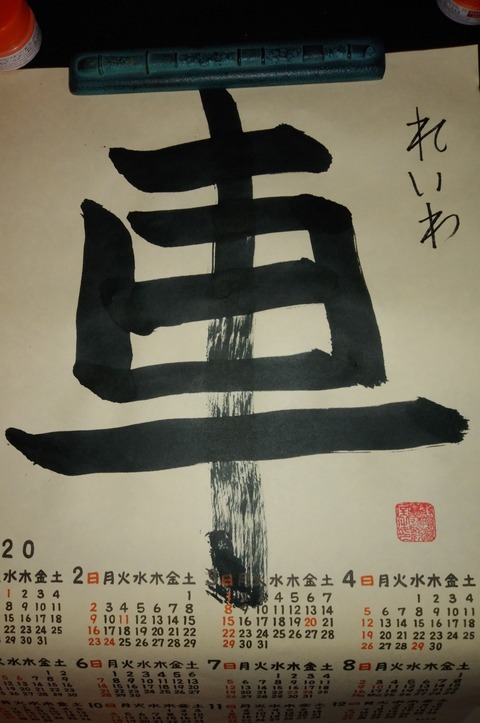 車
れいわ
20
水木金土
1 2 3 4
8 9 10 11
15 16 17 18
22 23 24 25
29 30 31
2 日月火水木金土
1
2 3 4 5 6 7 8
9 10 11 12 13 14 15
16 17 18 19 20 21 22
23 24 25 26 27 28 29
3 日月火水木金土
1 2 3 4 5 6 7
8 9 10 11 12 13 14
15 16 17 18 19 20 21
22 23 24 25 26 27 28
29 30 31
4 日月火水木金土
1 2 3 4
5 6 7 8 9 10 11
12 13 14 15 16 17 18
19 20 21 22 23 24 25
26 27 28 29 30
火水木金土
6 日月火水木金土
1 2 3 4 5 6
7 日月火水木金土
1 2 3 4
8 日月火水木金土
1
10
11
12